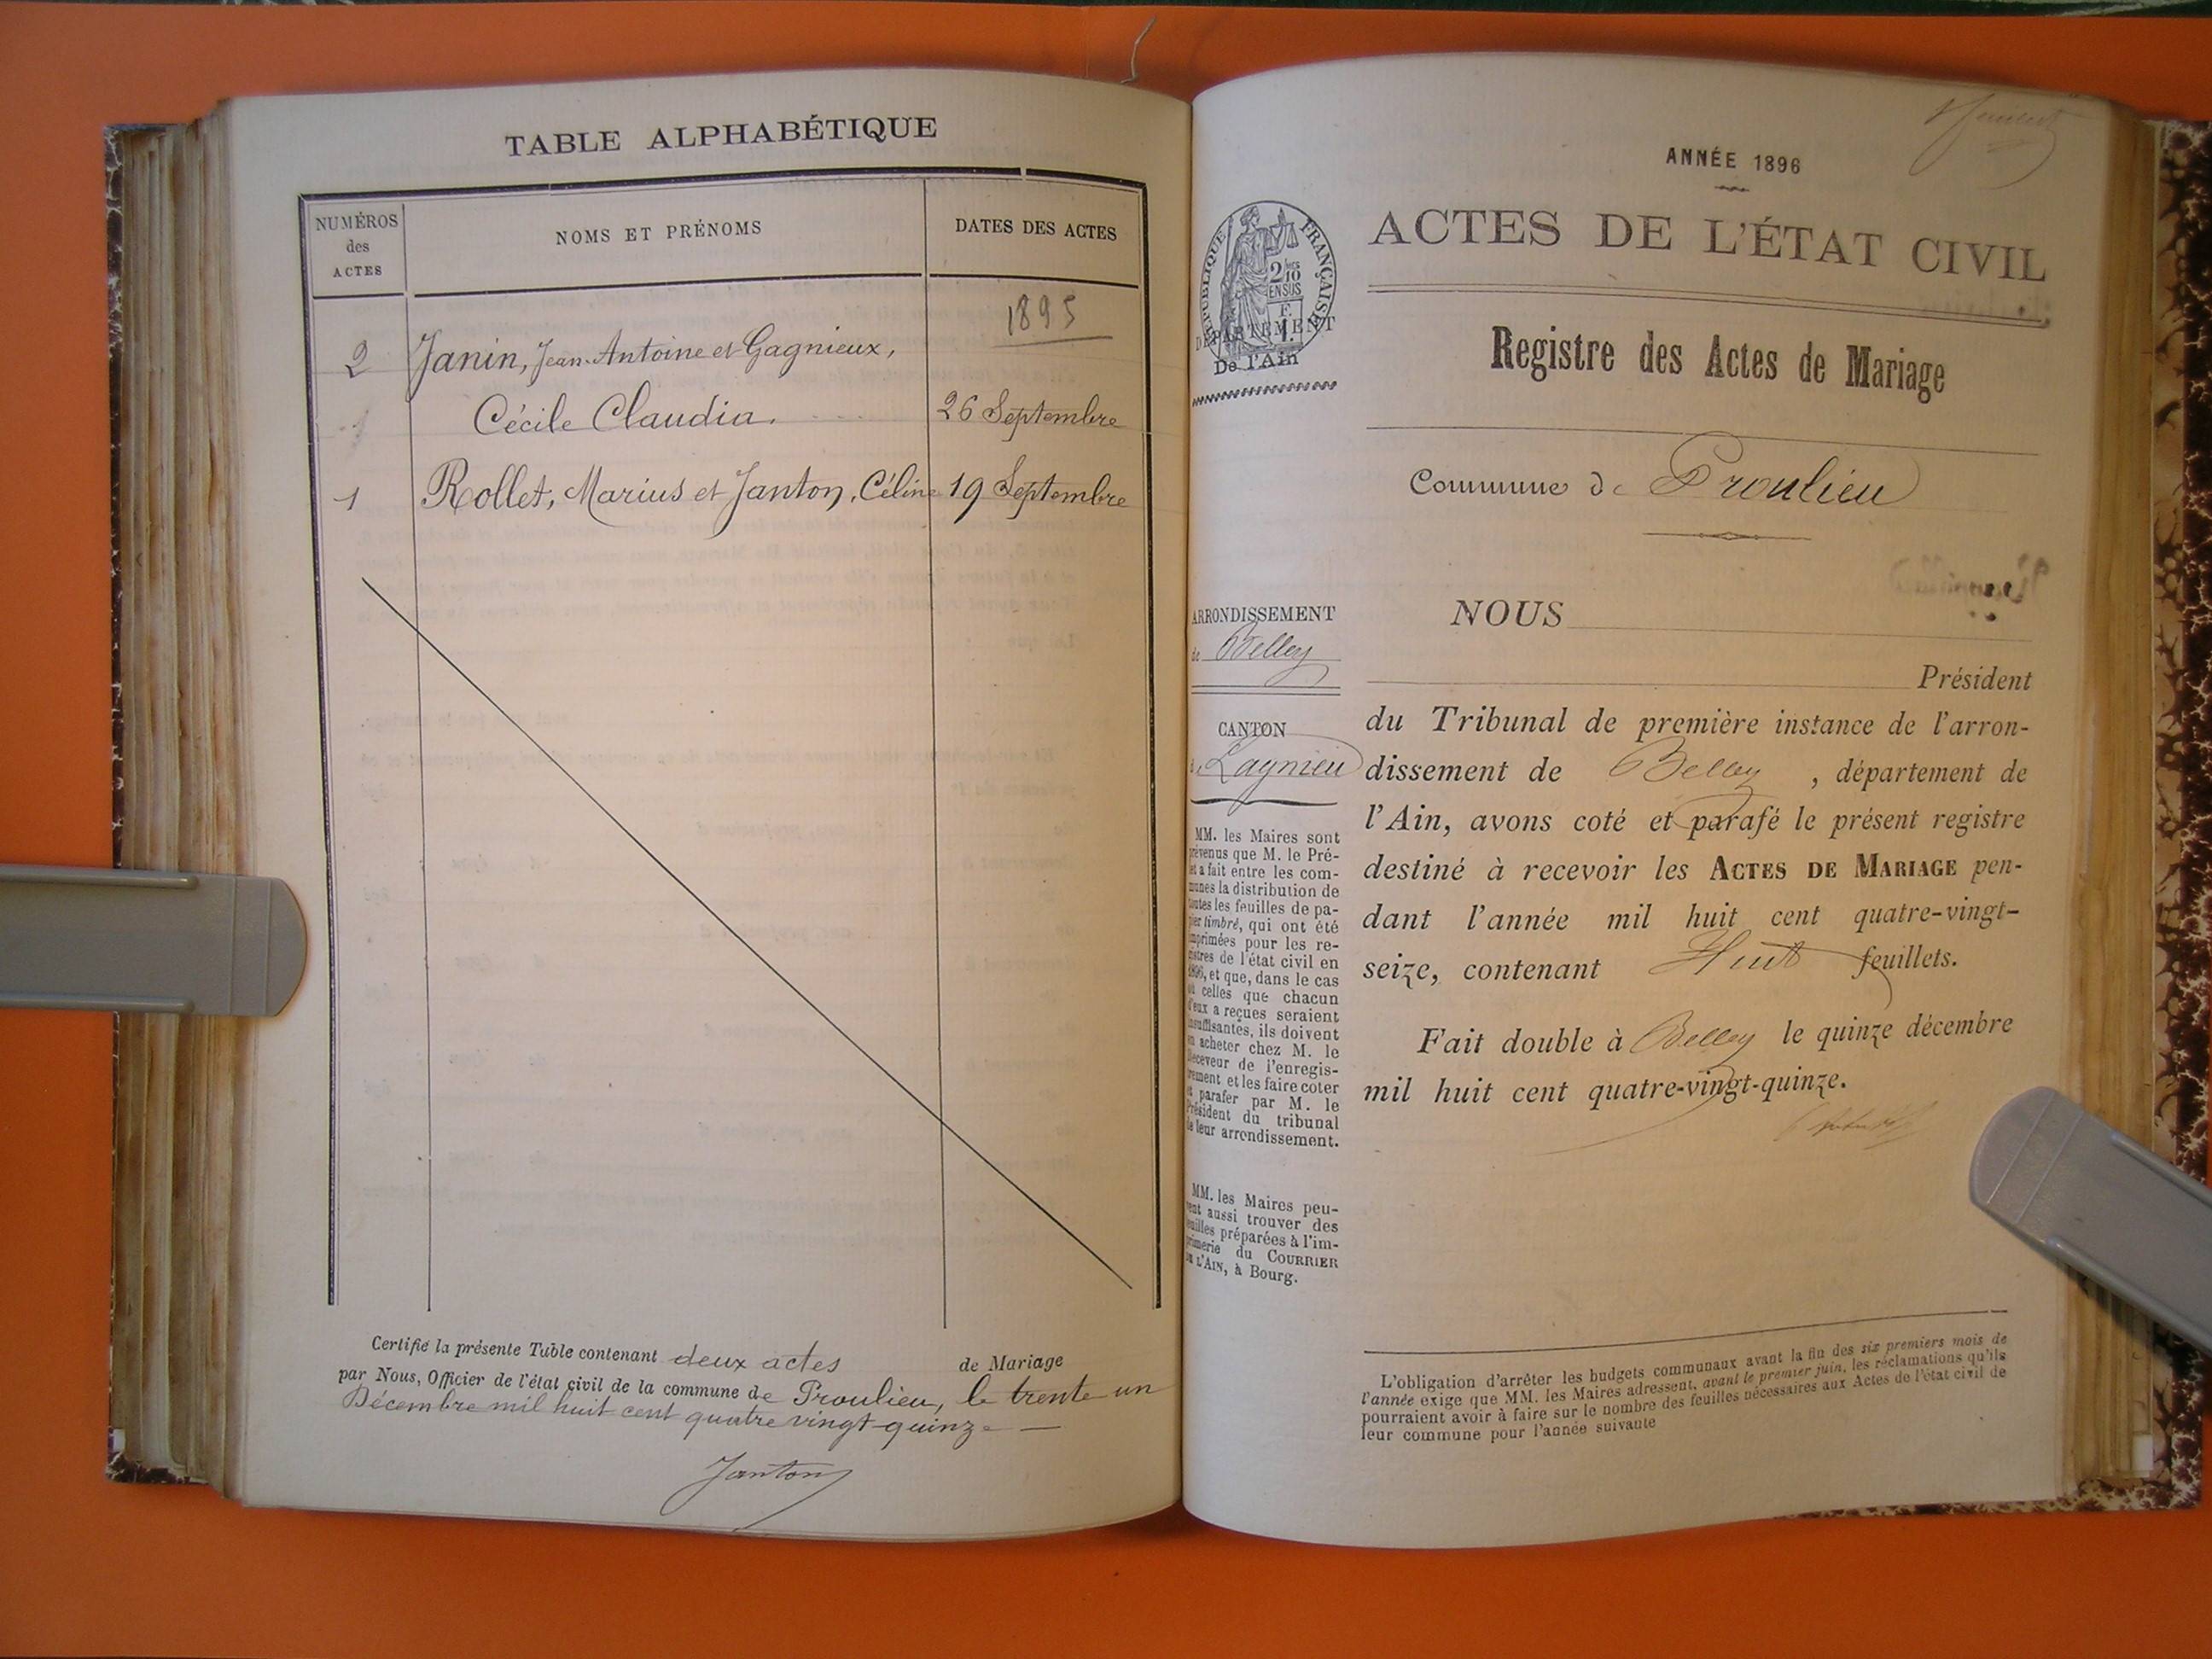 TABLE ALPHABÉTIQUE
NUMÉROS
des
ACTES
NOMS ET PRÉNOMS
DATES DES ACTES
1895
2 Janin, Jean-Antoine et Gagnieux,
Cécile Claudia. 26 Septembre
1 Rollet, Marius et Janton, Céline 19 Septembre
Certifié la présente Table contenant deux actes de Mariage
par Nous, Officier de l'état civil de la commune de Proulieu, le trente un
Décembre mil huit cent quatre vingt-quinze
Janton
ANNÉE 1896
ACTES DE L'ÉTAT CIVIL
RÉPUBLIQUE FRANÇAISE
DÉPARTEMENT
De l'Ain
Registre des Actes de Mariage
Commune de Proulieu
ARRONDISSEMENT
de Belley
CANTON
Lagnieu
MM. les Maires sont
prévenus que M. le Pré-
et a fait entre les com-
munes la distribution de
toutes les feuilles de pa-
pier timbré, qui ont été
imprimées pour les re-
gistres de l'état civil en
1896, et que, dans le cas
où celles que chacun
d'eux a reçues seraient
insuffisantes, ils doivent
en acheter chez M. le
Receveur de l'enregis-
trement et les faire coter
et parafer par M. le
Président du tribunal
de leur arrondissement.
MM. les Maires peu-
vent aussi trouver des
feuilles préparées à l'im-
primerie du COURRIER
DE L'AIN, à Bourg.
NOUS
Président
du Tribunal de première instance de l'arron-
dissement de Belley, département de
l'Ain, avons coté et parafé le présent registre
destiné à recevoir les ACTES DE MARIAGE pen-
dant l'année mil huit cent quatre-vingt-
seize, contenant Huit feuillets.
Fait double à Belley le quinze décembre
mil huit cent quatre-vingt-quinze.
L'obligation d'arrêter les budgets communaux avant la fin des six premiers mois de
l'année exige que MM. les Maires adressent, avant le premier juin, les réclamations qu'ils
pourraient avoir à faire sur le nombre des feuilles nécessaires aux Actes de l'état civil de
leur commune pour l'année suivante